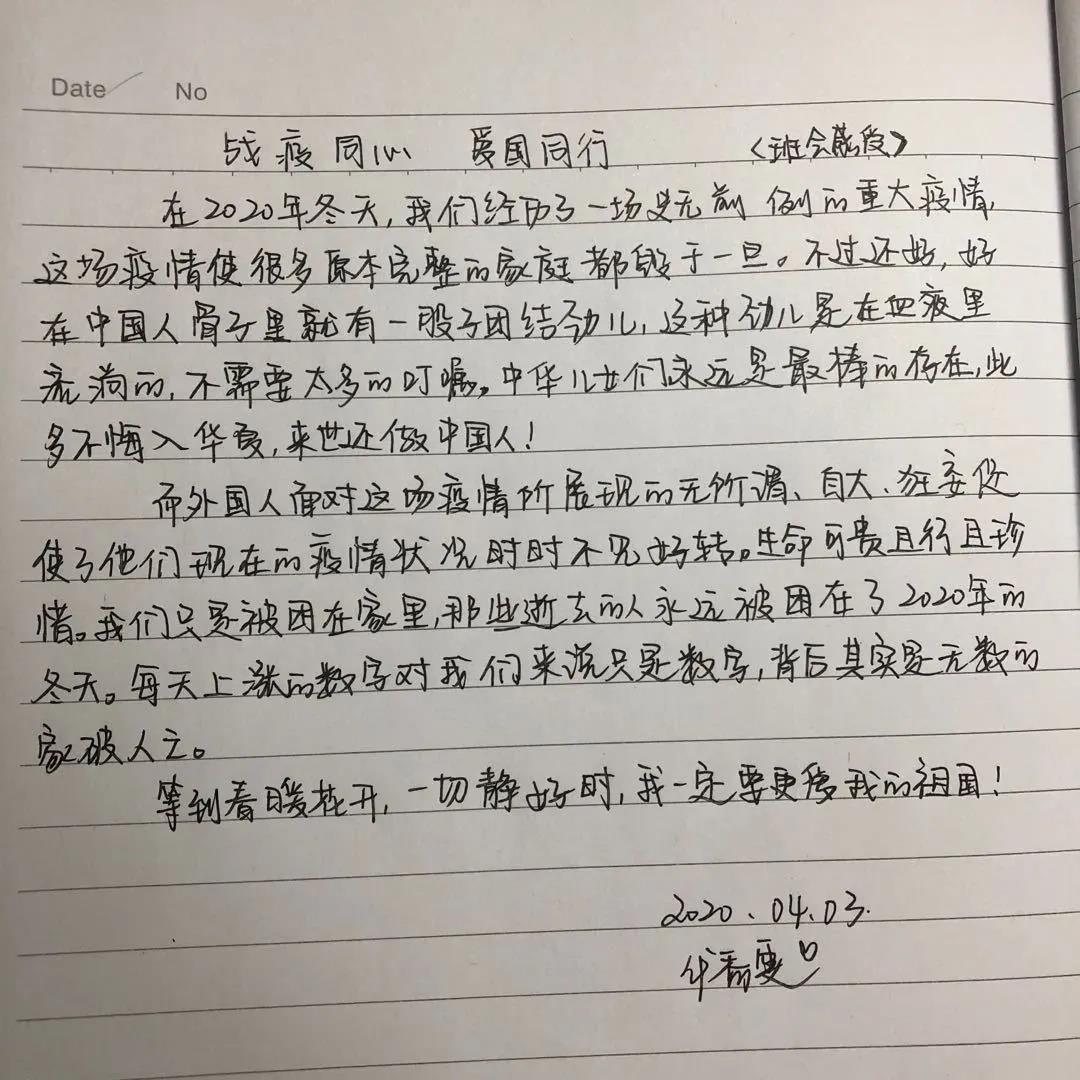 Date No
战疫同心 爱国同行 〈班会感受〉
在2020年冬天,我们经历了一场史无前例的重大疫情,
这场疫情使很多原本完整的家庭都毁于一旦。不过还好,好
在中国人骨子里就有一股子团结劲儿,这种劲儿是在血液里
流淌的,不需要太多的叮嘱。中华儿女们永远是最棒的存在,此
多不悔入华夏,来世还做中国人!
而外国人面对这场疫情所展现的无所谓、自大、狂妄促
使了他们现在的疫情状况时时不见好转。生命可贵且行且珍
惜。我们只是被困在家里,那些逝去的人永远被困在了2020年的
冬天。每天上涨的数字对我们来说只是数字,背后其实是无数的
家破人亡。
等到春暖花开,一切静好时,我一定要更爱我的祖国!
2020.04.03.